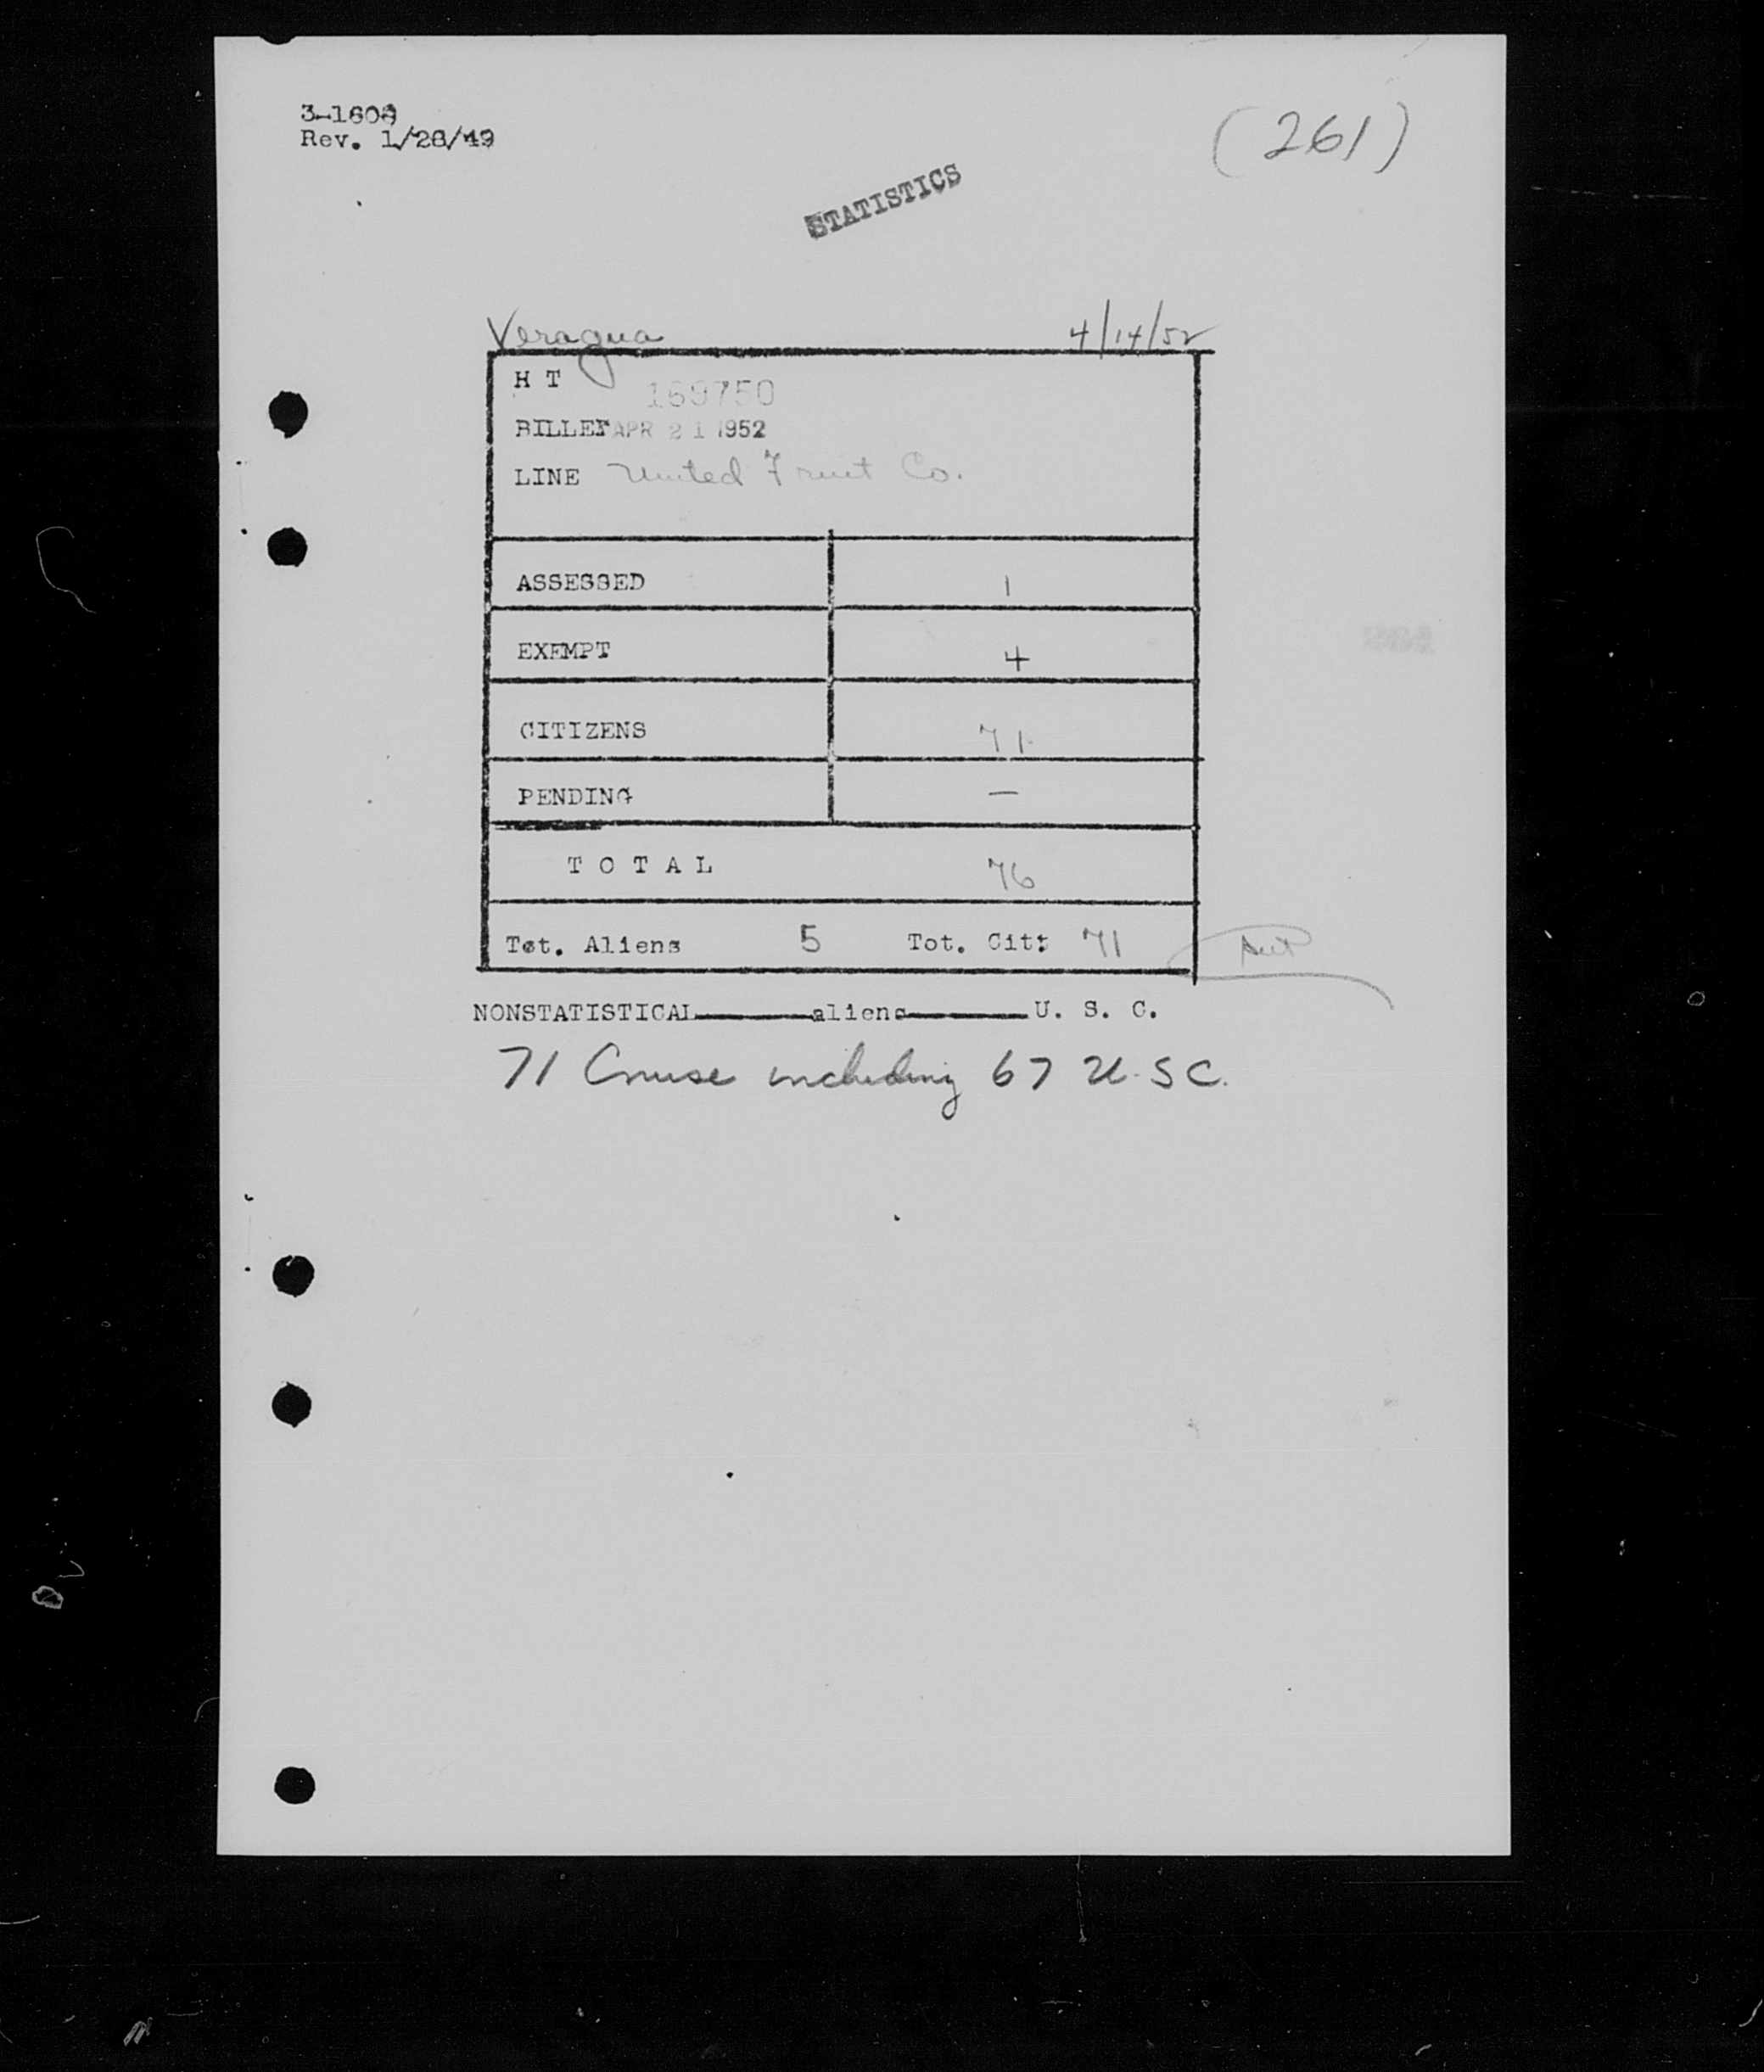 3-1608
Rev. 1/28/49
(261)
STATISTICS
Veragua 4/14/52
H T 169750
BILLET APR 21 1952
LINE United Fruit Co.
ASSESSED 1
EXEMPT 4
CITIZENS 71
PENDING —
T O T A L 76
Tot. Aliens 5 Tot. Cit: 71
NONSTATISTICAL aliens U. S. C.
71 Cruise including 67 U.S.C.